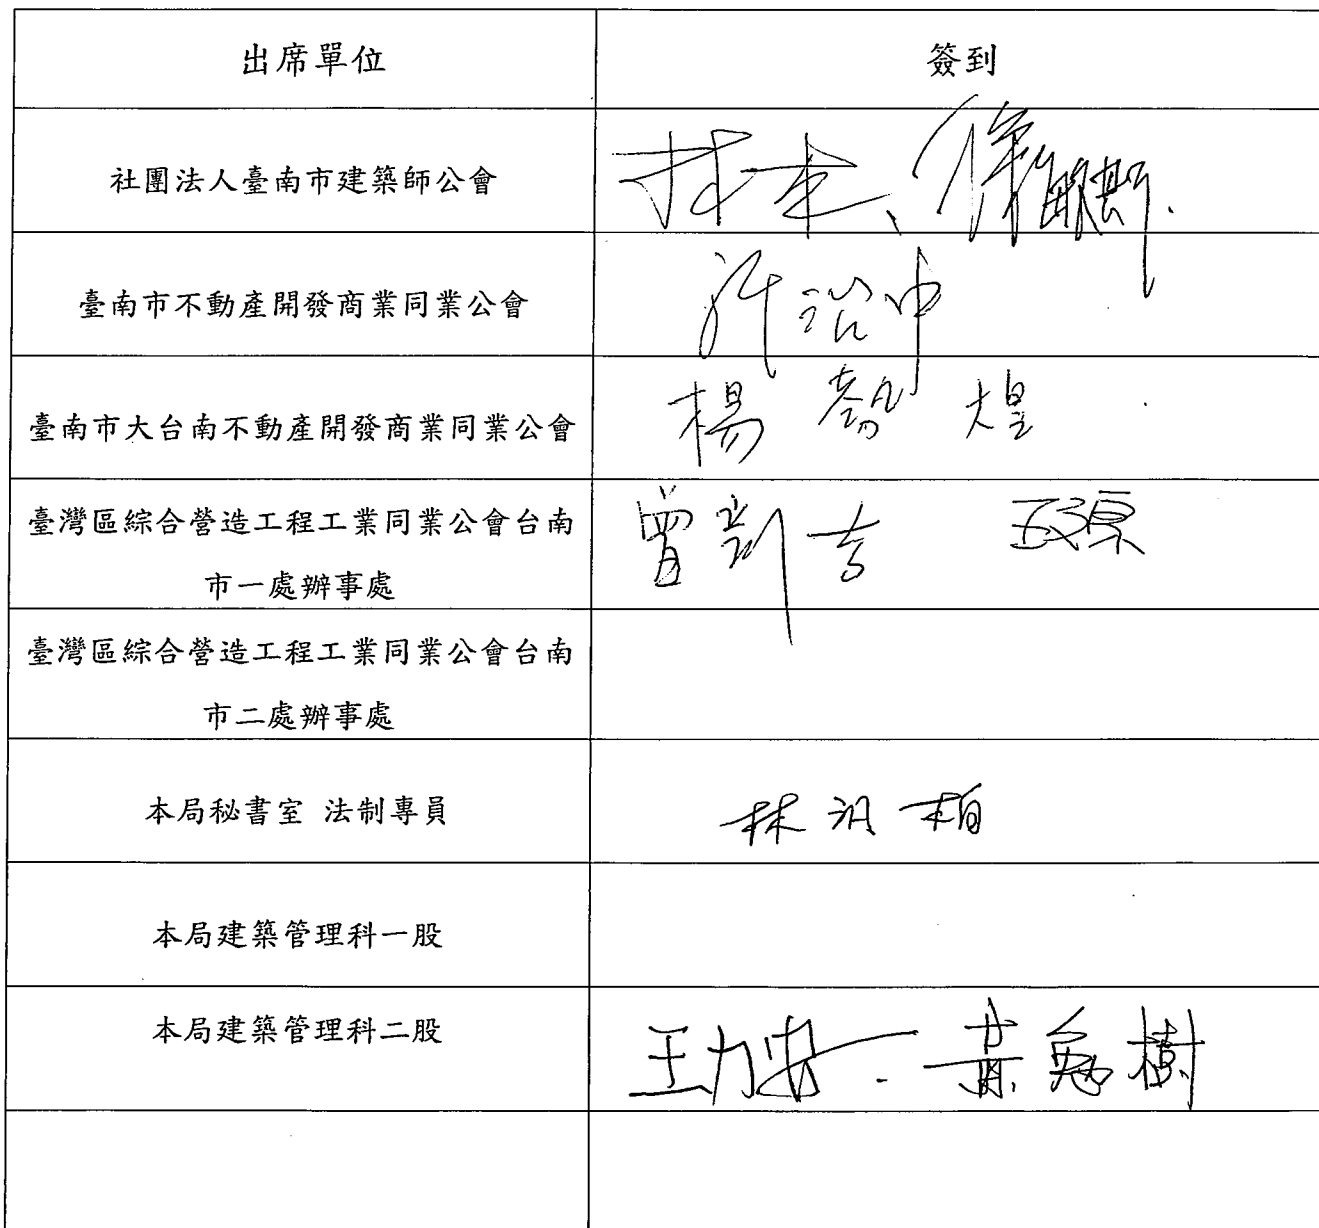 出席單位
簽到
社團法人臺南市建築師公會
臺南市不動產開發商業同業公會
臺南市大台南不動產開發商業同業公會
楊
煌
臺灣區綜合營造工程工業同業公會台南
市一處辦事處
曾
臺灣區綜合營造工程工業同業公會台南
市二處辦事處
本局秘書室 法制專員
林 柏
本局建築管理科一股
本局建築管理科二股
王力安
樹